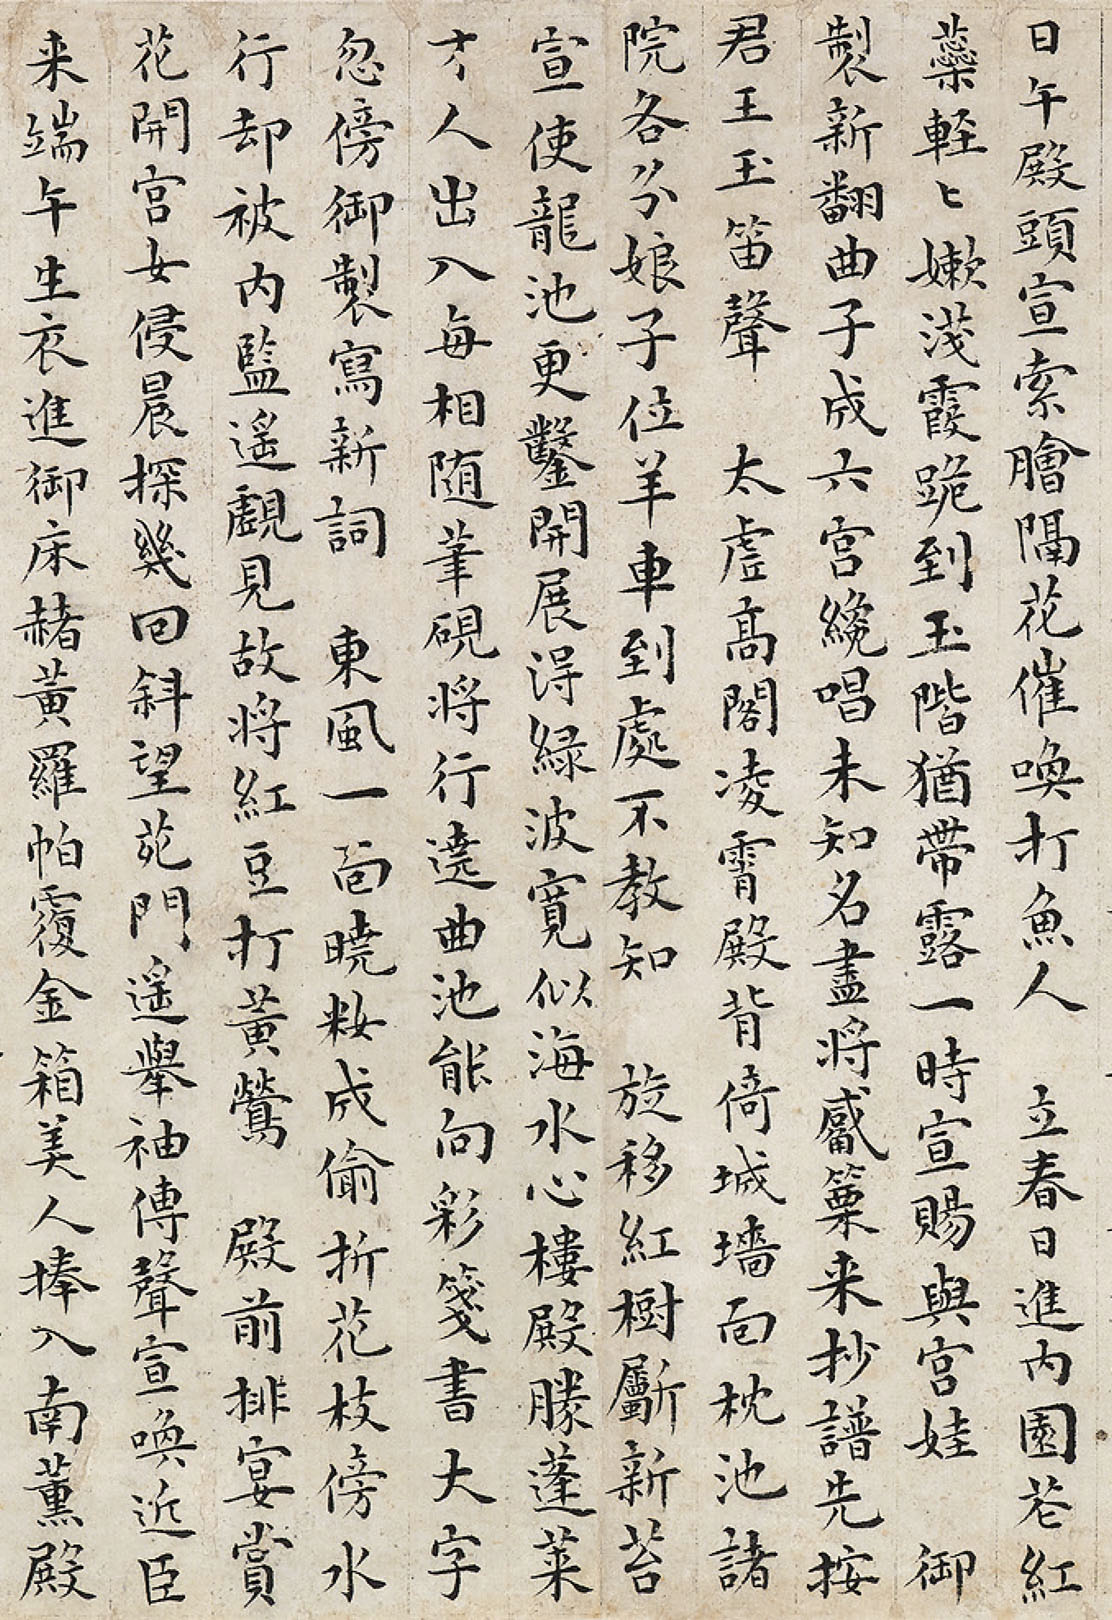 日午殿頭宣索膾隔花催喚打魚人　立春日進内園花紅
蘂軽〻嫰淺霞跪到玉階猶帶露一時宣賜與宮娃　御
製新翻曲子成六宮纔唱未知名盡將觱篥来抄譜先按
君王玉笛聲　太虛高閣凌霄殿背倚城墻面枕池諸
院各分娘子位羊車到處不教知　旋移紅樹斸新苔
宣使龍池更鑿開展得緑波寛似海水心樓殿勝蓬莱
才人出入每相随筆硯将行遶曲池能向彩箋書大字
忽傍御製寫新詞　東風一面曉粧成偷折花枝傍水
行却被内監遥覷見故將紅豆打黃鶯　殿前排宴賞
花開宮女侵晨探幾回斜望苑門遥舉袖傳聲宣喚近臣
来端午生衣進御床赭黃羅帕覆金箱美人捧入南薰殿